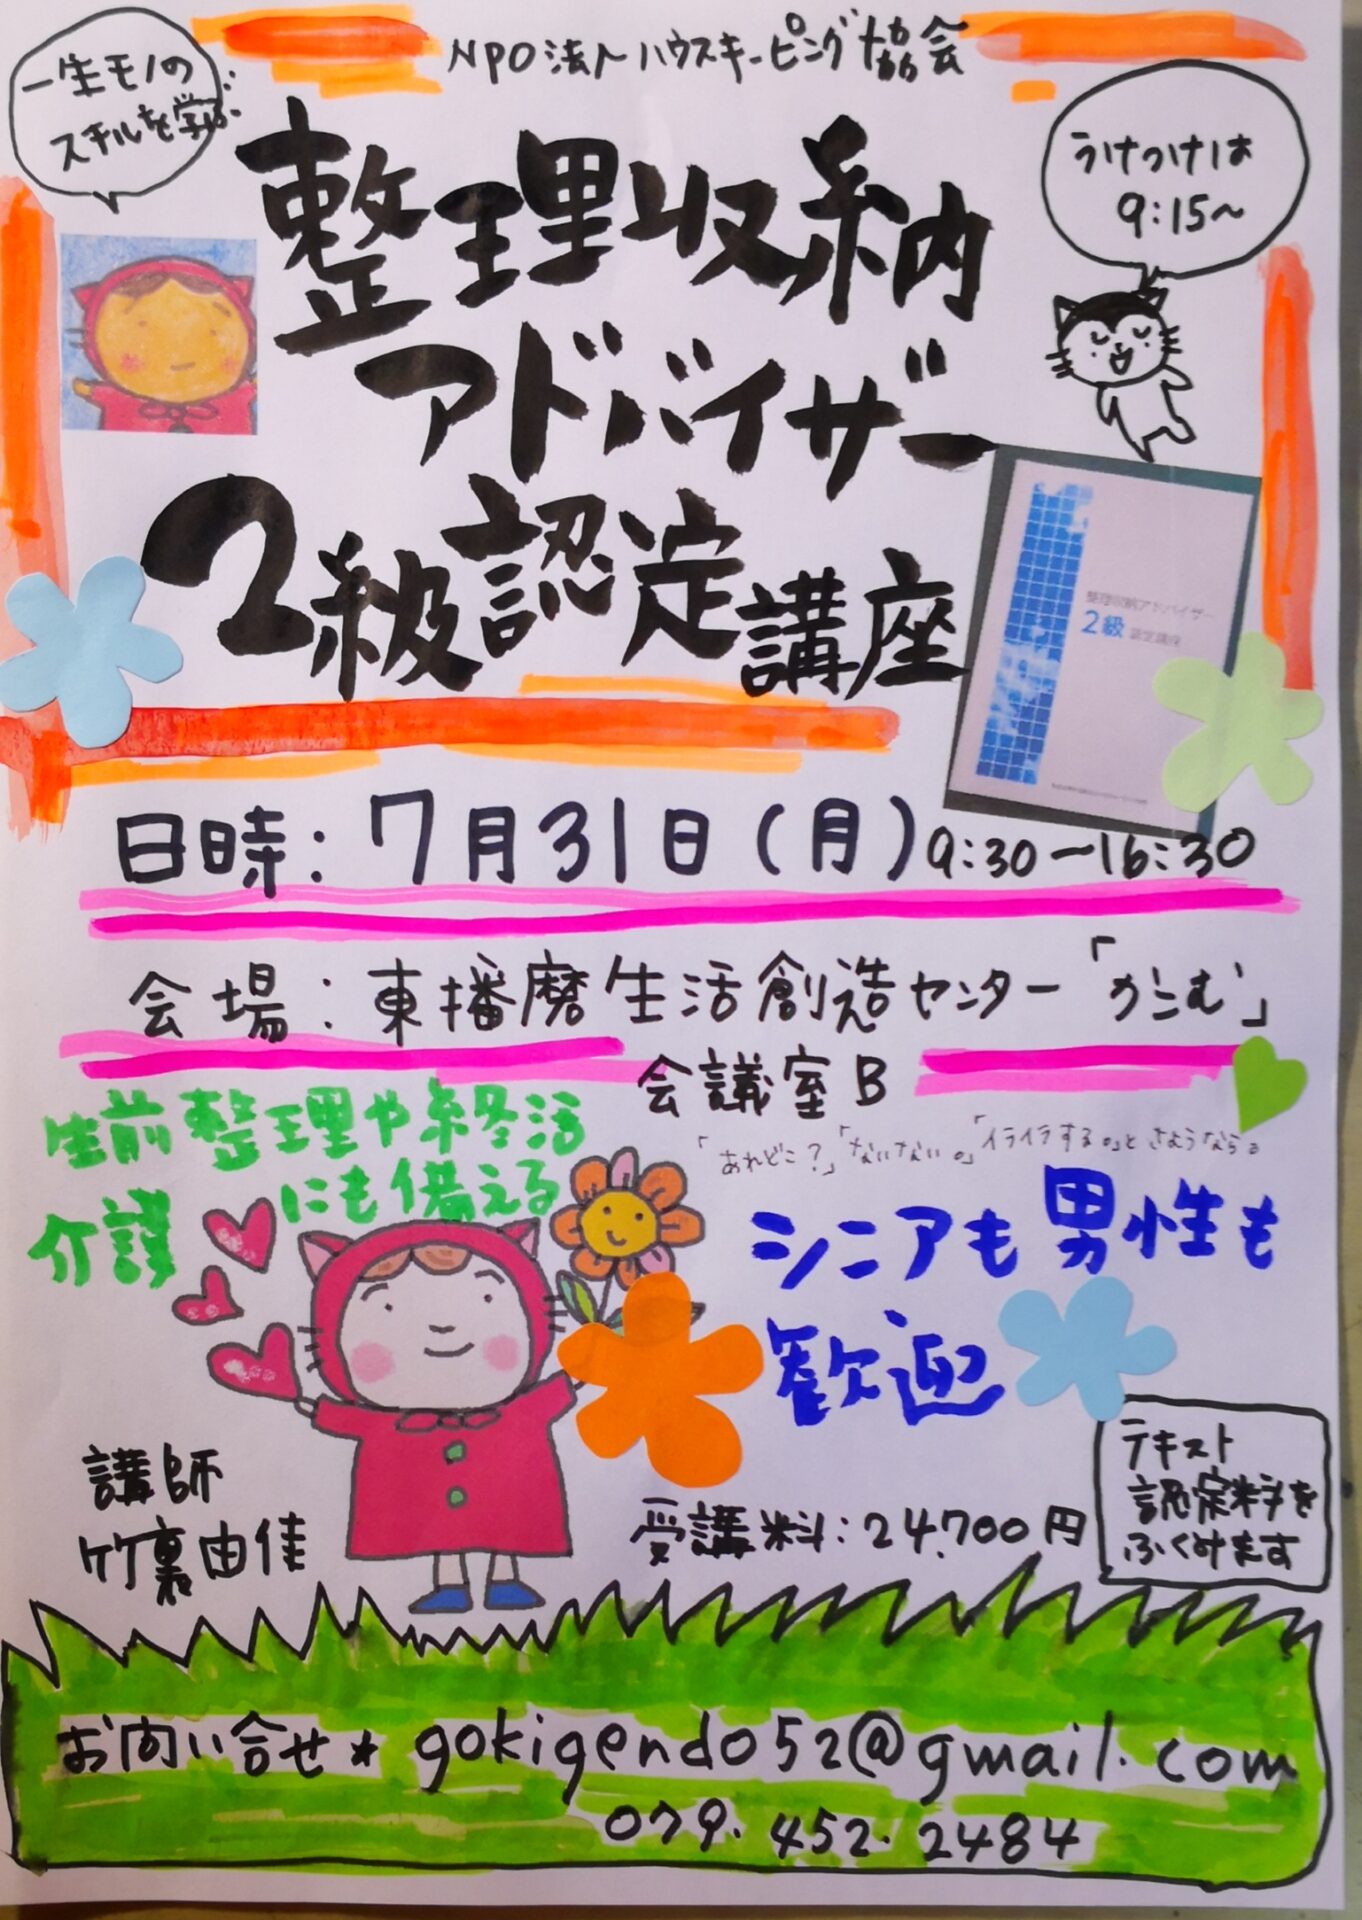 NPO法人ハウスキーピング協会
一生モノの
スキルを学ぶ
うけつけは
9:15〜
整理収納
アドバイザー
2級認定講座
整理収納アドバイザー
2級 認定講座
日時:7月31日(月)9:30〜16:30
会場:東播磨生活創造センター「かこむ」
会議室B
生前整理や終活
介護にも備える
「あれどこ?」「ないない。」「イライラする。」とさようなら。
シニアも男性も
歓迎
講師
竹裏由佳
受講料:24,700円
テキスト
認定料を
ふくみます
お問い合せ★gokigendo52@gmail.com
079.452.2484